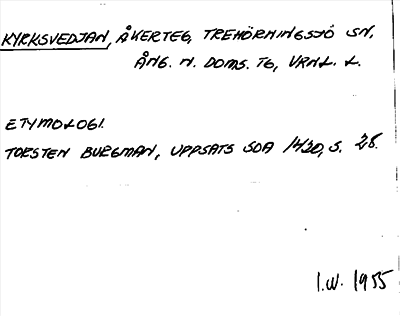 KYRKSVEDJAN, ÅKERTEG, TREHÖRNINGSJÖ SN,
ÅNG. N. DOMS. TG, VRNL. L.
ETYMOLOGI.
TORSTEN BURGMAN, UPPSATS SOA 1420, S. 28.
I.W. 1955